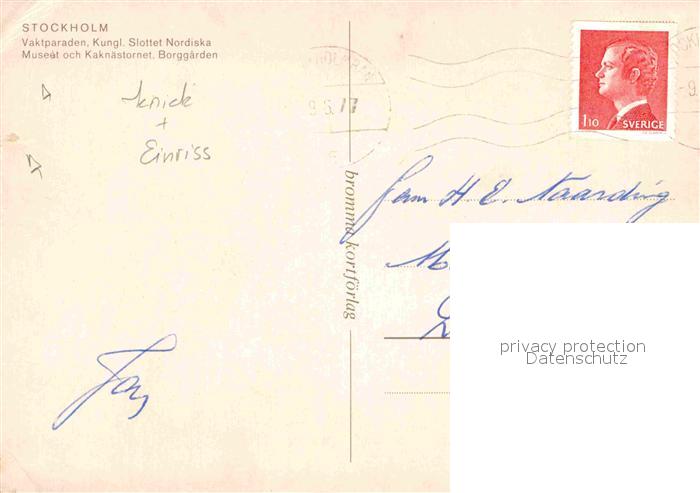 STOCKHOLM
Vaktparaden, Kungl. Slottet Nordiska
Museet och Kaknästornet, Borggården
Knick
+
Einriss
9.5.77
-9.
1.10
SVERIGE
bromma kortförlag
Fam H. E. Naarding
privacy protection
Datenschutz